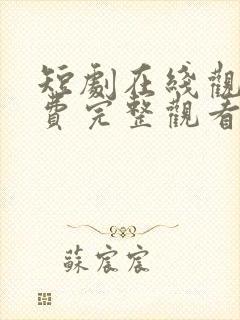 短劇在綫觀
費完整觀看
蘇宸宸